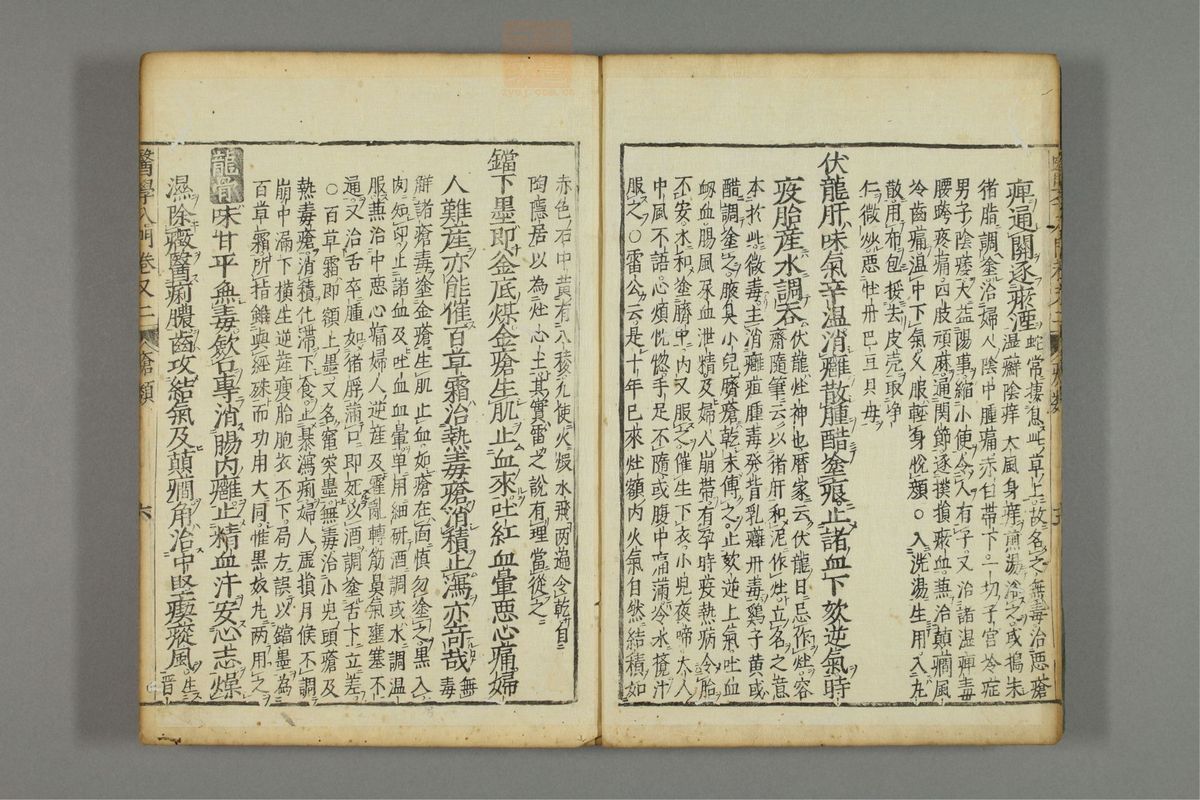 痺通關逐瘀湮蛇常棲息此草上故名之無毒治惡瘡
濕癬陰痒大風身痒煎湯浴之或搗末
猪脂調塗治婦人陰中腫痛赤白帶下一切子宮冷症
男子陰痿大益陽事縮小便令人有子又治諸濕痺毒
腰胯疼痛四肢頑麻通關節逐撲損瘀血兼治顛癇風
冷齒痛溫中下氣久服輕身悅顏○入洗湯生用入丸
散用布包挼去皮壳取淨
仁微炒惡牡丹巴豆貝母
伏龍肝味氣辛溫消癰散腫醋塗痕止諸血下欬逆氣時
疫胎產水調吞伏龍灶神也曆家云伏龍日忌作灶容
齋隨筆云以猪肝和泥作灶立名之意
本於此微毒主消癰疽腫毒發背乳癰丹毒鷄子黃或
醋調塗之腋臭小兒臍瘡乾末傅之止欬逆上氣吐血
衂血腸風尿血泄精及婦人崩帶有孕時疫熱病令胎
不安水和塗臍中內又服之催生下衣小兒夜啼大人
中風不語心煩恍惚手足不隨或腹中痛滿冷水攪汁
服之○雷公云是十年已來灶額內火氣自然結積如
赤色石中黃有八稜凡使火煅水飛兩遍令乾自
陶隱居以為灶心土其實雷之說有理當從之
鐺下墨即釜底煤金瘡生肌止血來吐紅血暈惡心痛婦
人難產亦能催百草霜治熱毒瘡消積止瀉亦竒哉無毒
辟諸瘡毒塗金瘡生肌止血如瘡在面慎勿塗之黑入
肉如印止諸血及吐血血暈单用細研酒調或水調温
服兼治中惡心痛婦人逆產及霍亂轉筋鼻氣壅塞不
通又治舌卒腫如猪脬滿口即死以酒調塗舌下立差
○百草霜即額上墨又名竃突墨無毒治小兒頭瘡及
熱毒瘡消積化滯下食止暴瀉痢婦人虛損月候不調
崩中漏下橫生逆產瘦胎胞衣不下局方誤以鐺墨為
百草霜所指雖與經殊而功用大同惟黑奴丸兩用之
龍骨味甘平無毒歛口專消腸內癰止精血汗安心志燥
濕除癥醫痢膿齒攻結氣及顛癎角治中堅瘈瘲風生晋
醫學入門卷又二 瘡類 六